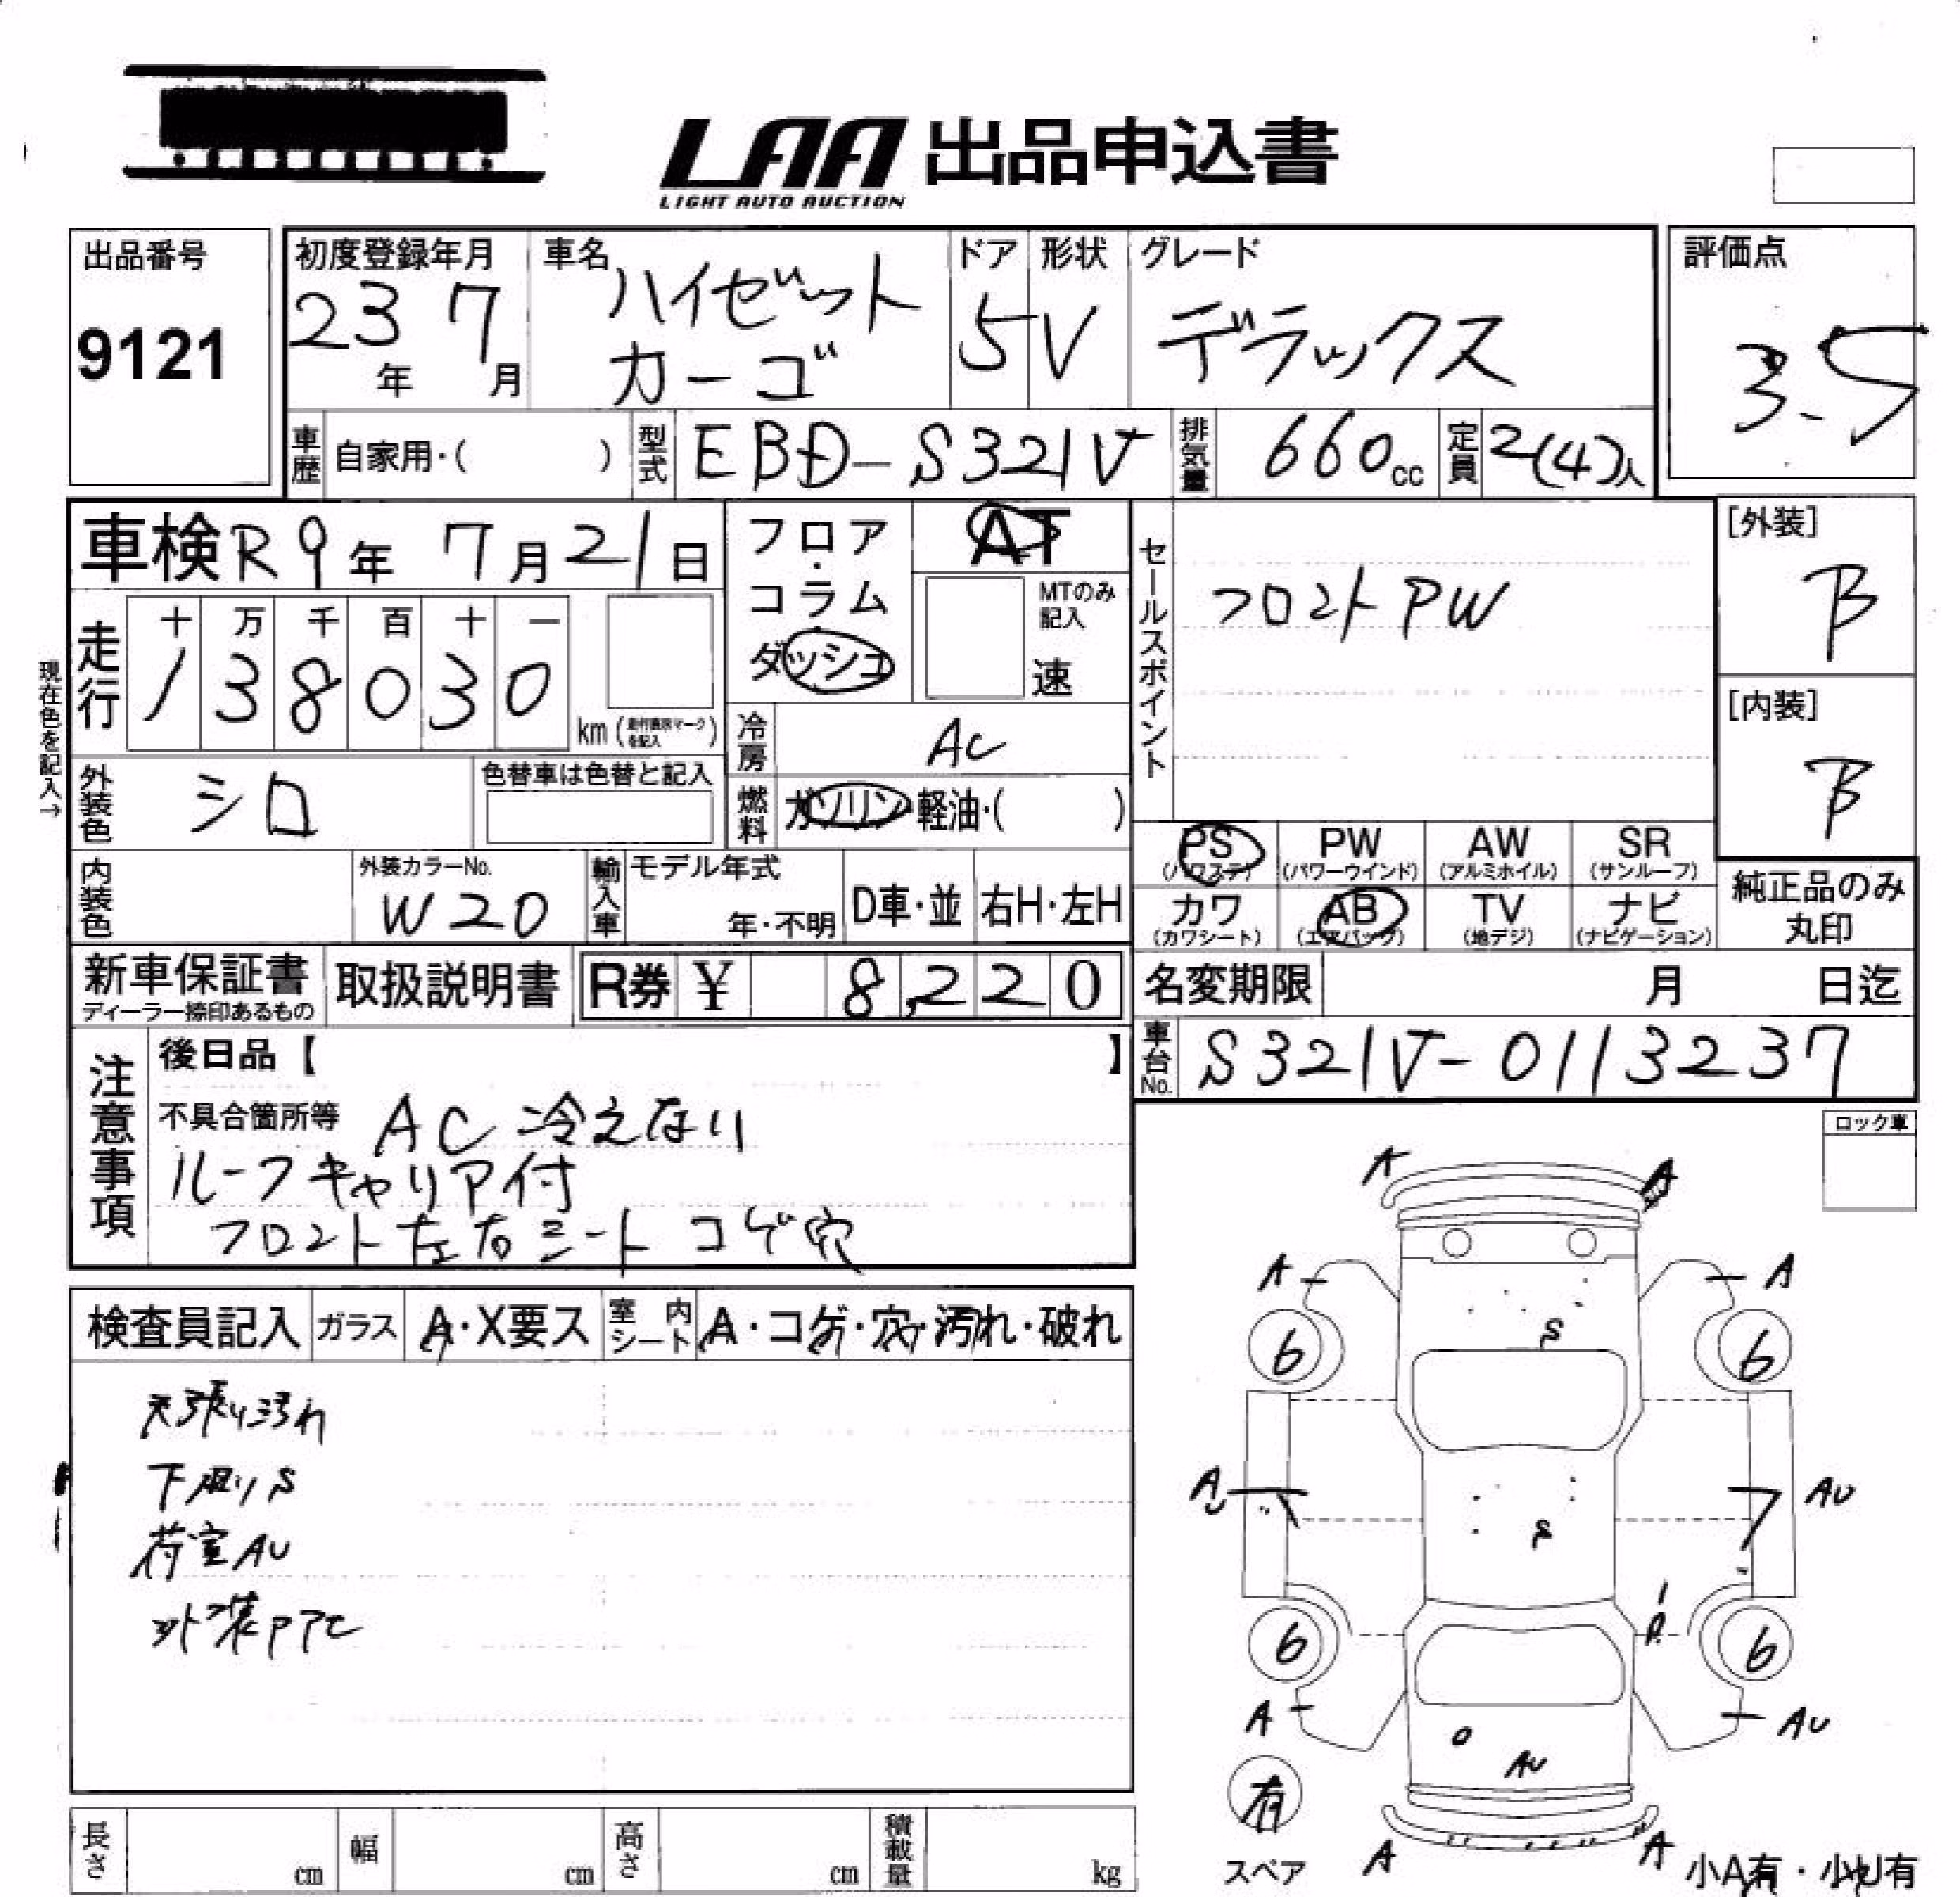 LAA 出品申込書
LIGHT AUTO AUCTION
出品番号
9121
初度登録年月
23年 7月
車名
ハイゼット
カーゴ
ドア
5
形状
V
グレード
デラックス
評価点
3.5
車歴 自家用・( )
型式 EBD-S321V
排気量 660cc
定員 2(4)人
車検 R9年 7月21日
フロア・コラム・ダッシュ
AT
MTのみ記入
速
セールスポイント
フロントPW
[外装]
B
[内装]
B
現在色を記入→
走行
十 万 千 百 十 一
1 3 8 0 3 0
km (走行表示マークを記入)
冷房 AC
外装色 シロ
色替車は色替と記入
燃料 ガソリン・軽油・( )
PS (パワステ)
PW (パワーウインド)
AW (アルミホイル)
SR (サンルーフ)
カワ (カワシート)
AB (エアバッグ)
TV (地デジ)
ナビ (ナビゲーション)
純正品のみ
丸印
内装色
外装カラーNo.
W20
輸入車
モデル年式
年・不明
D車・並
右H・左H
新車保証書
ディーラー捺印あるもの
取扱説明書
R券 ¥ 8,220
名変期限 月 日迄
車台No. S321V-0113237
注意事項
後日品【 】
不具合箇所等 AC 冷えない
ルーフキャリア付
フロント左右シート コゲ穴
ロック車
検査員記入
ガラス A・X要ス
室内シート A・コゲ・穴・汚れ・破れ
天張り汚れ
下廻りS
荷室AU
外装PアE
A A
A A
S
6 6
AU AU
S
P
6 6
A AU
AU
有
スペア
A A
小A有・小U有
長さ cm
幅 cm
高さ cm
積載量 kg